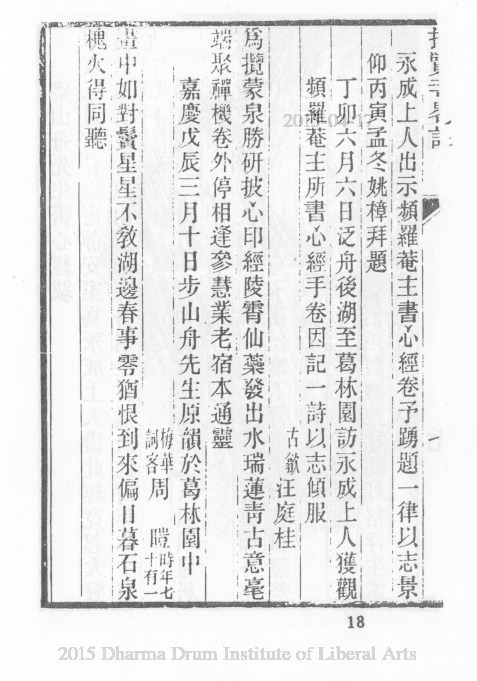 永成上人出示頻羅菴主書心經卷予踴題一律以志景
仰丙寅孟冬姚樟拜題
丁卯六月六日泛舟後湖至葛林園訪永成上人獲觀
頻羅菴主所書心經手卷因記一詩以志傾服
古歙汪庭桂
為攬蒙泉勝研披心印經陵霄仙藥發出水瑞蓮靑古意毫
端聚禪機卷外停相逢參慧業老宿本通靈
嘉慶戊辰三月十日步山舟先生原韻於葛林園中
梅華詞客周暟時年七十有一
畫中如對鬢星星不敎湖邊春事零猶恨到來偏日暮石泉
槐火得同聽
18
2015 Dharma Drum Institute of Liberal Arts